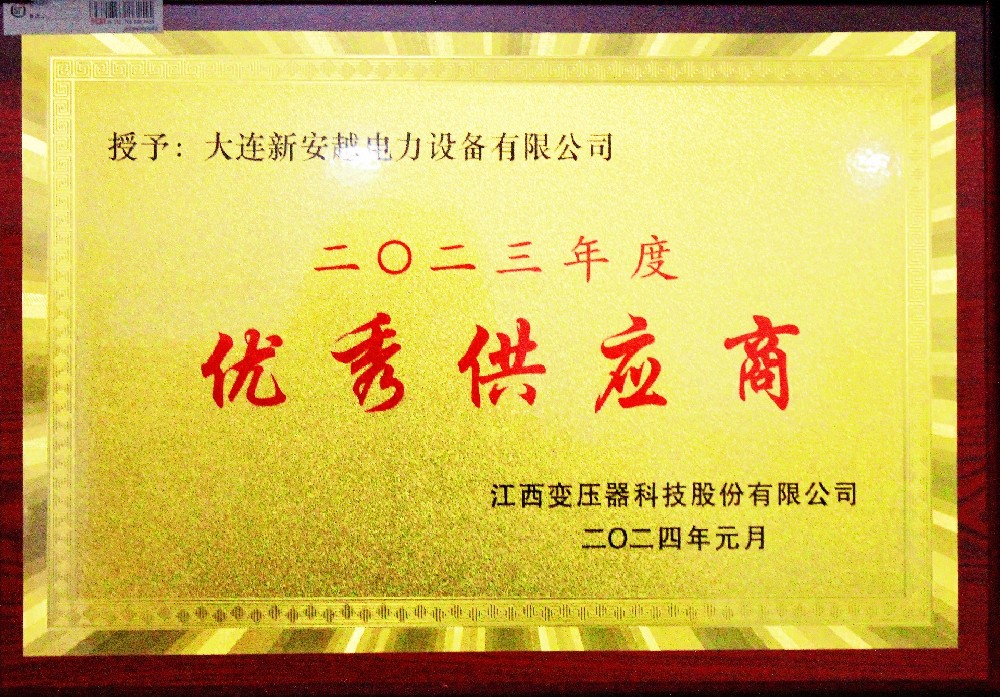 授予：大连新安越电力设备有限公司
二〇二三年度
优秀供应商
江西变压器科技股份有限公司
二〇二四年元月